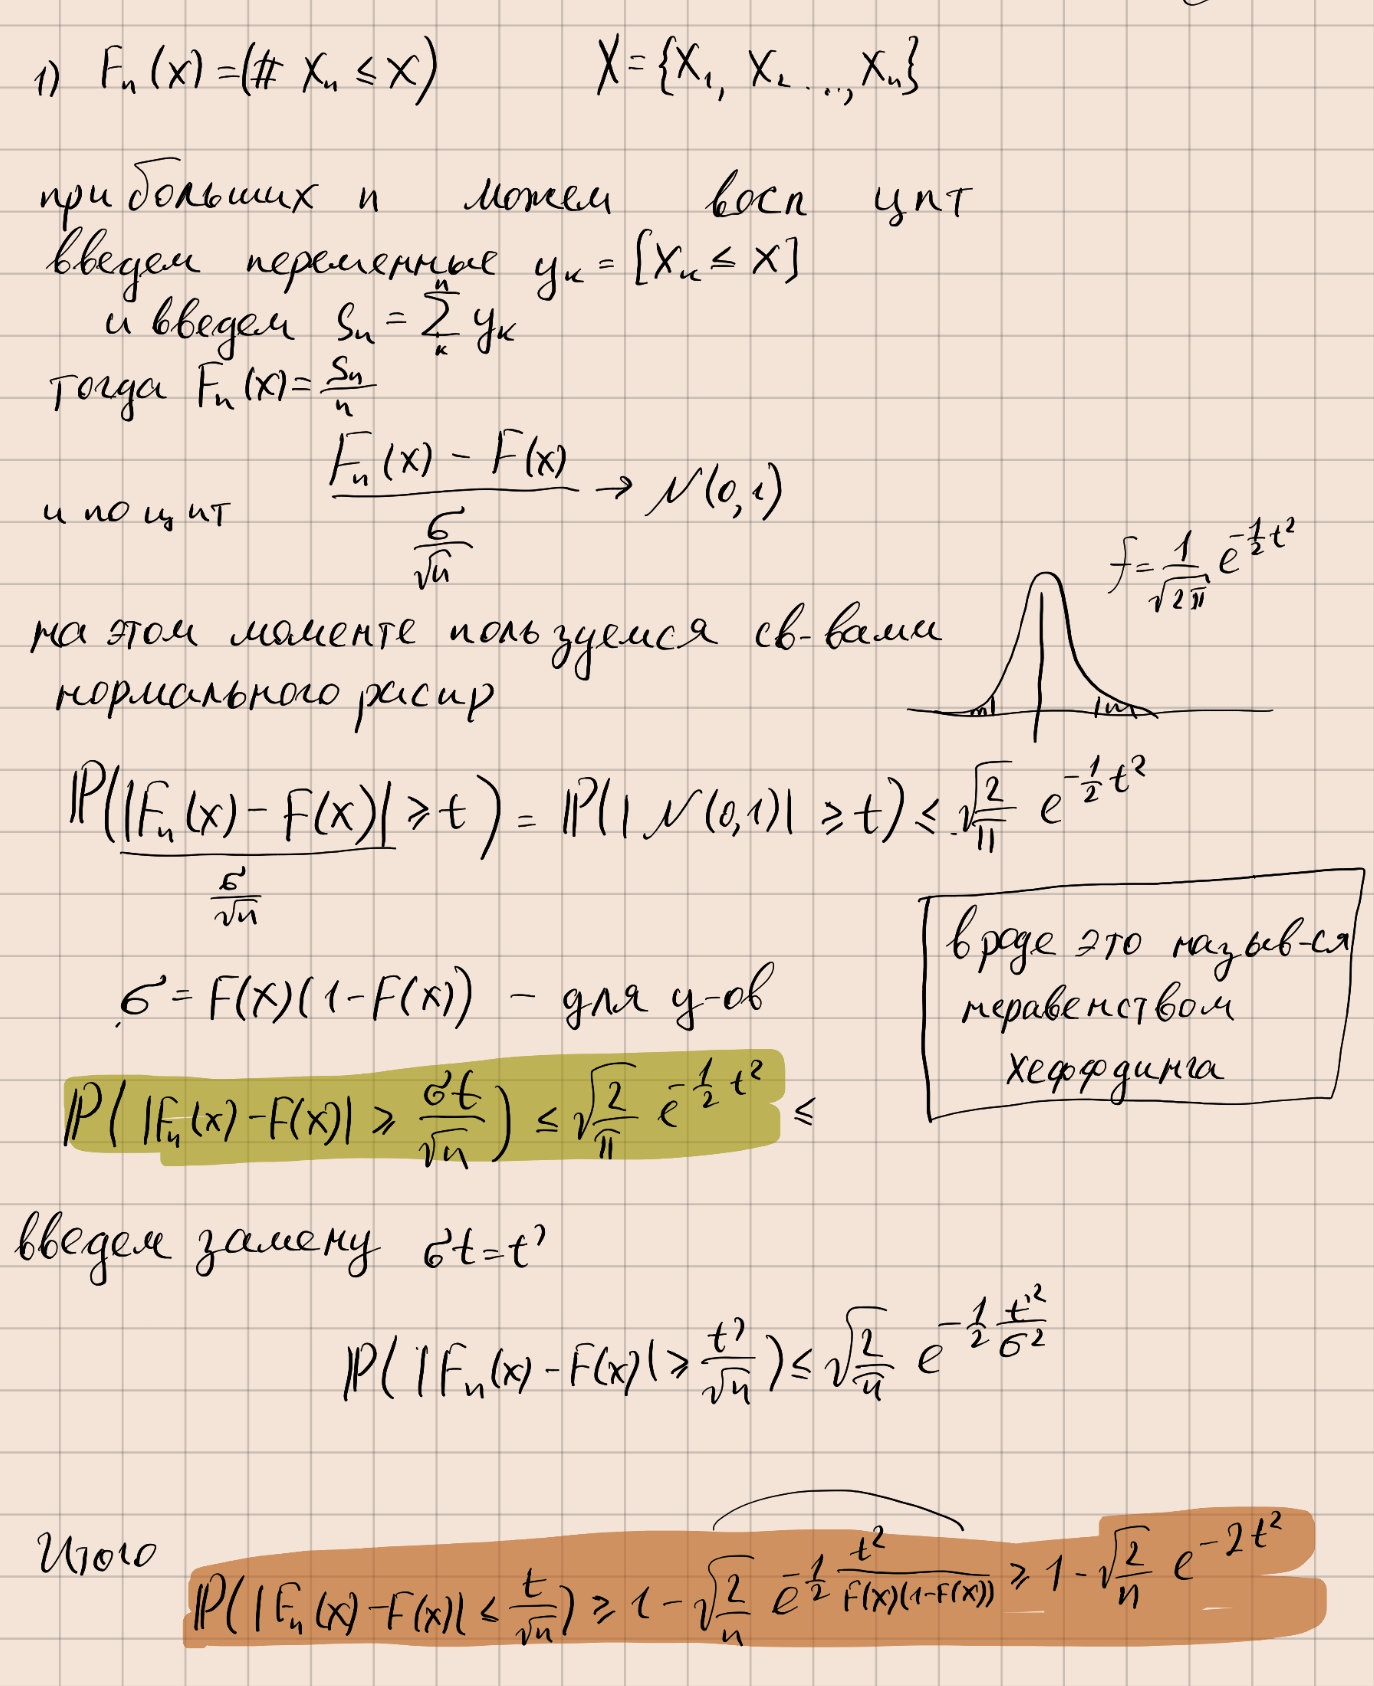 1) Fₙ(x) = (# Xₙ ≤ x) X = {X₁, X₂ ..., Xₙ}
при больших n можем восп цпт
введем переменные yₖ = [Xₖ ≤ x]
и введем Sₙ = ∑ₖⁿ yₖ
тогда Fₙ(x) = Sₙ/n
и по цпт (Fₙ(x) - F(x))/(σ/√n) → N(0,1)
f = 1/√(2π) e^(-1/2 t²)
на этом моменте пользуемся св-вами
нормального распр
ℙ(|Fₙ(x) - F(x)|/(σ/√n) ≥ t) = ℙ(|N(0,1)| ≥ t) ≤ √(2/π) e^(-1/2 t²)
σ = F(x)(1-F(x)) - для y-ов
вроде это назыв-ся
неравенством
хеффдинга
ℙ(|Fₙ(x) - F(x)| ≥ σt/√n) ≤ √(2/π) e^(-1/2 t²) ≤
введем замену σt = t'
ℙ(|Fₙ(x) - F(x)| ≥ t'/√n) ≤ √(2/π) e^(-1/2 t'²/σ²)
Итого
ℙ(|Fₙ(x) - F(x)| ≤ t/√n) ≥ 1 - √(2/π) e^(-1/2 t²/(F(x)(1-F(x)))) ≥ 1 - √(2/π) e^(-2t²)